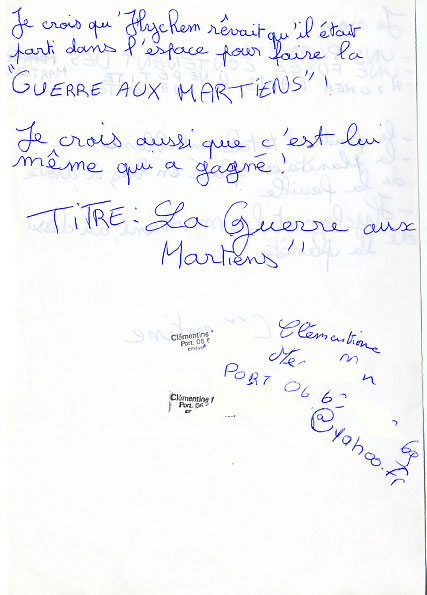 Je crois qu'Hychem rêvait qu'il était
parti dans l'espace pour faire la
"GUERRE AUX MARTIENS"!
Je crois aussi que c'est lui
même qui a gagné!
TITRE: La Guerre aux
Martiens"
Clémentine
Port. 06
Clémentine
Port. 06
Clémentine
PORT 06 6
@yahoo.fr